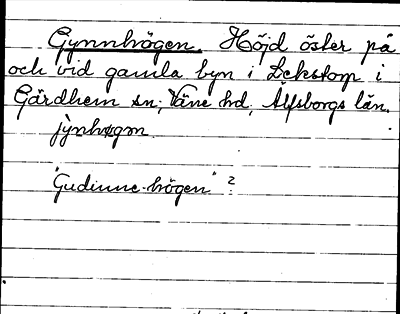 Gynnhögen. Höjd öster på
och vid gamla byn i Lekstorp i
Gärdhem sn, Väne hd, Älfsborgs län.
jỳnhøgm
"Gudinne-högen" ?